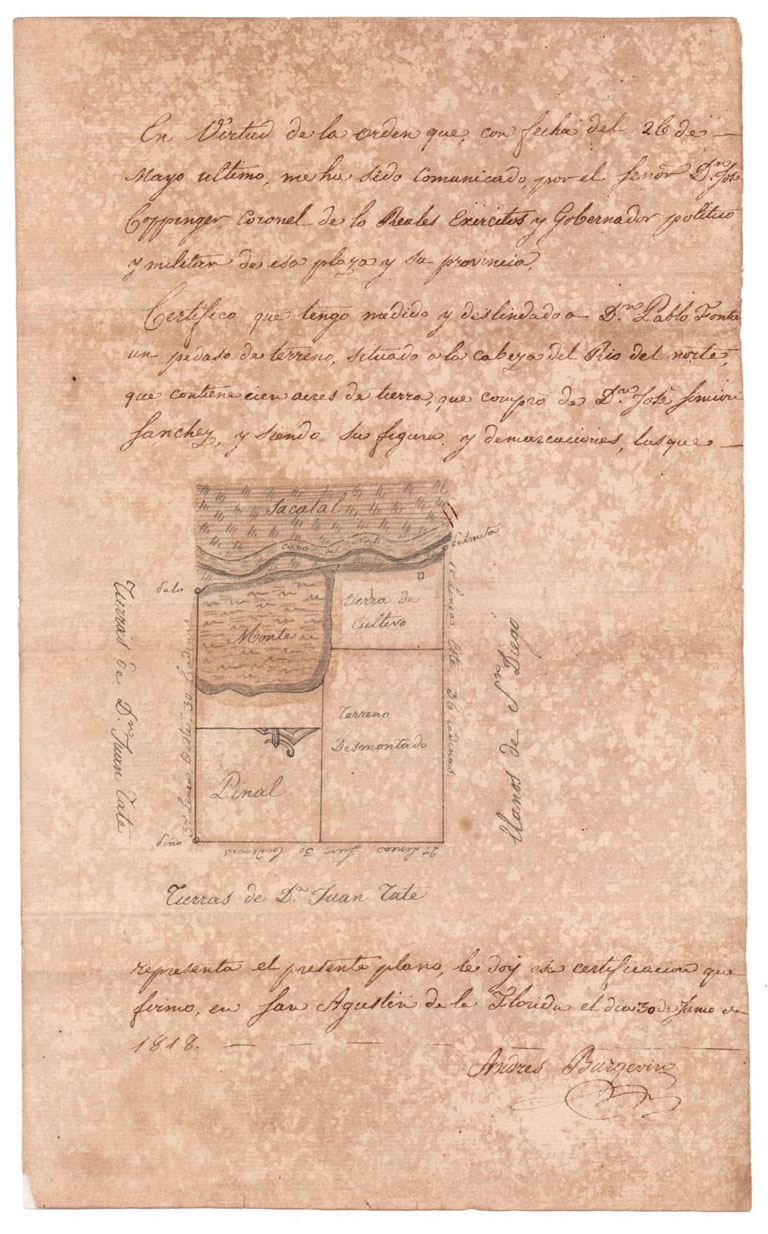 En Virtud de la orden que, con fecha del 26 de —
Mayo ultimo, me ha sido comunicado, por el señor Dn. José
Coppenger coronel de lo Reales Exercitos y Gobernador politico
y militar de esa plaza y su provincia.
Certifico que tengo medido y deslindado a Dn. Pablo Fonte
un pedaso de terreno, situado a la cabeza del Rio del norte,
que contiene cien acres de tierra, que compro de Dn. José Simion
Sanchez, y siendo su figura y demarcaciones, las que —
Sacatal
Caño del Norte
Palo
Palmita
tierra de
Cultivo
Monte
Terreno
Desmontado
Pinal
Pino
1a. Linea Este 36 cadenas
2a. Linea Sur 30 Cadenas
3a. Linea Oeste 30 Cadenas
Tierras de Dn. Juan Tate
Llanos de Sn. Diego
Tierras de Dn. Juan Tate
representa el presente plano, le doy esa certificacion que
firmo, en San Agustin de la Florida el dia 30 de Junio de
1818.
Andres Burgevin